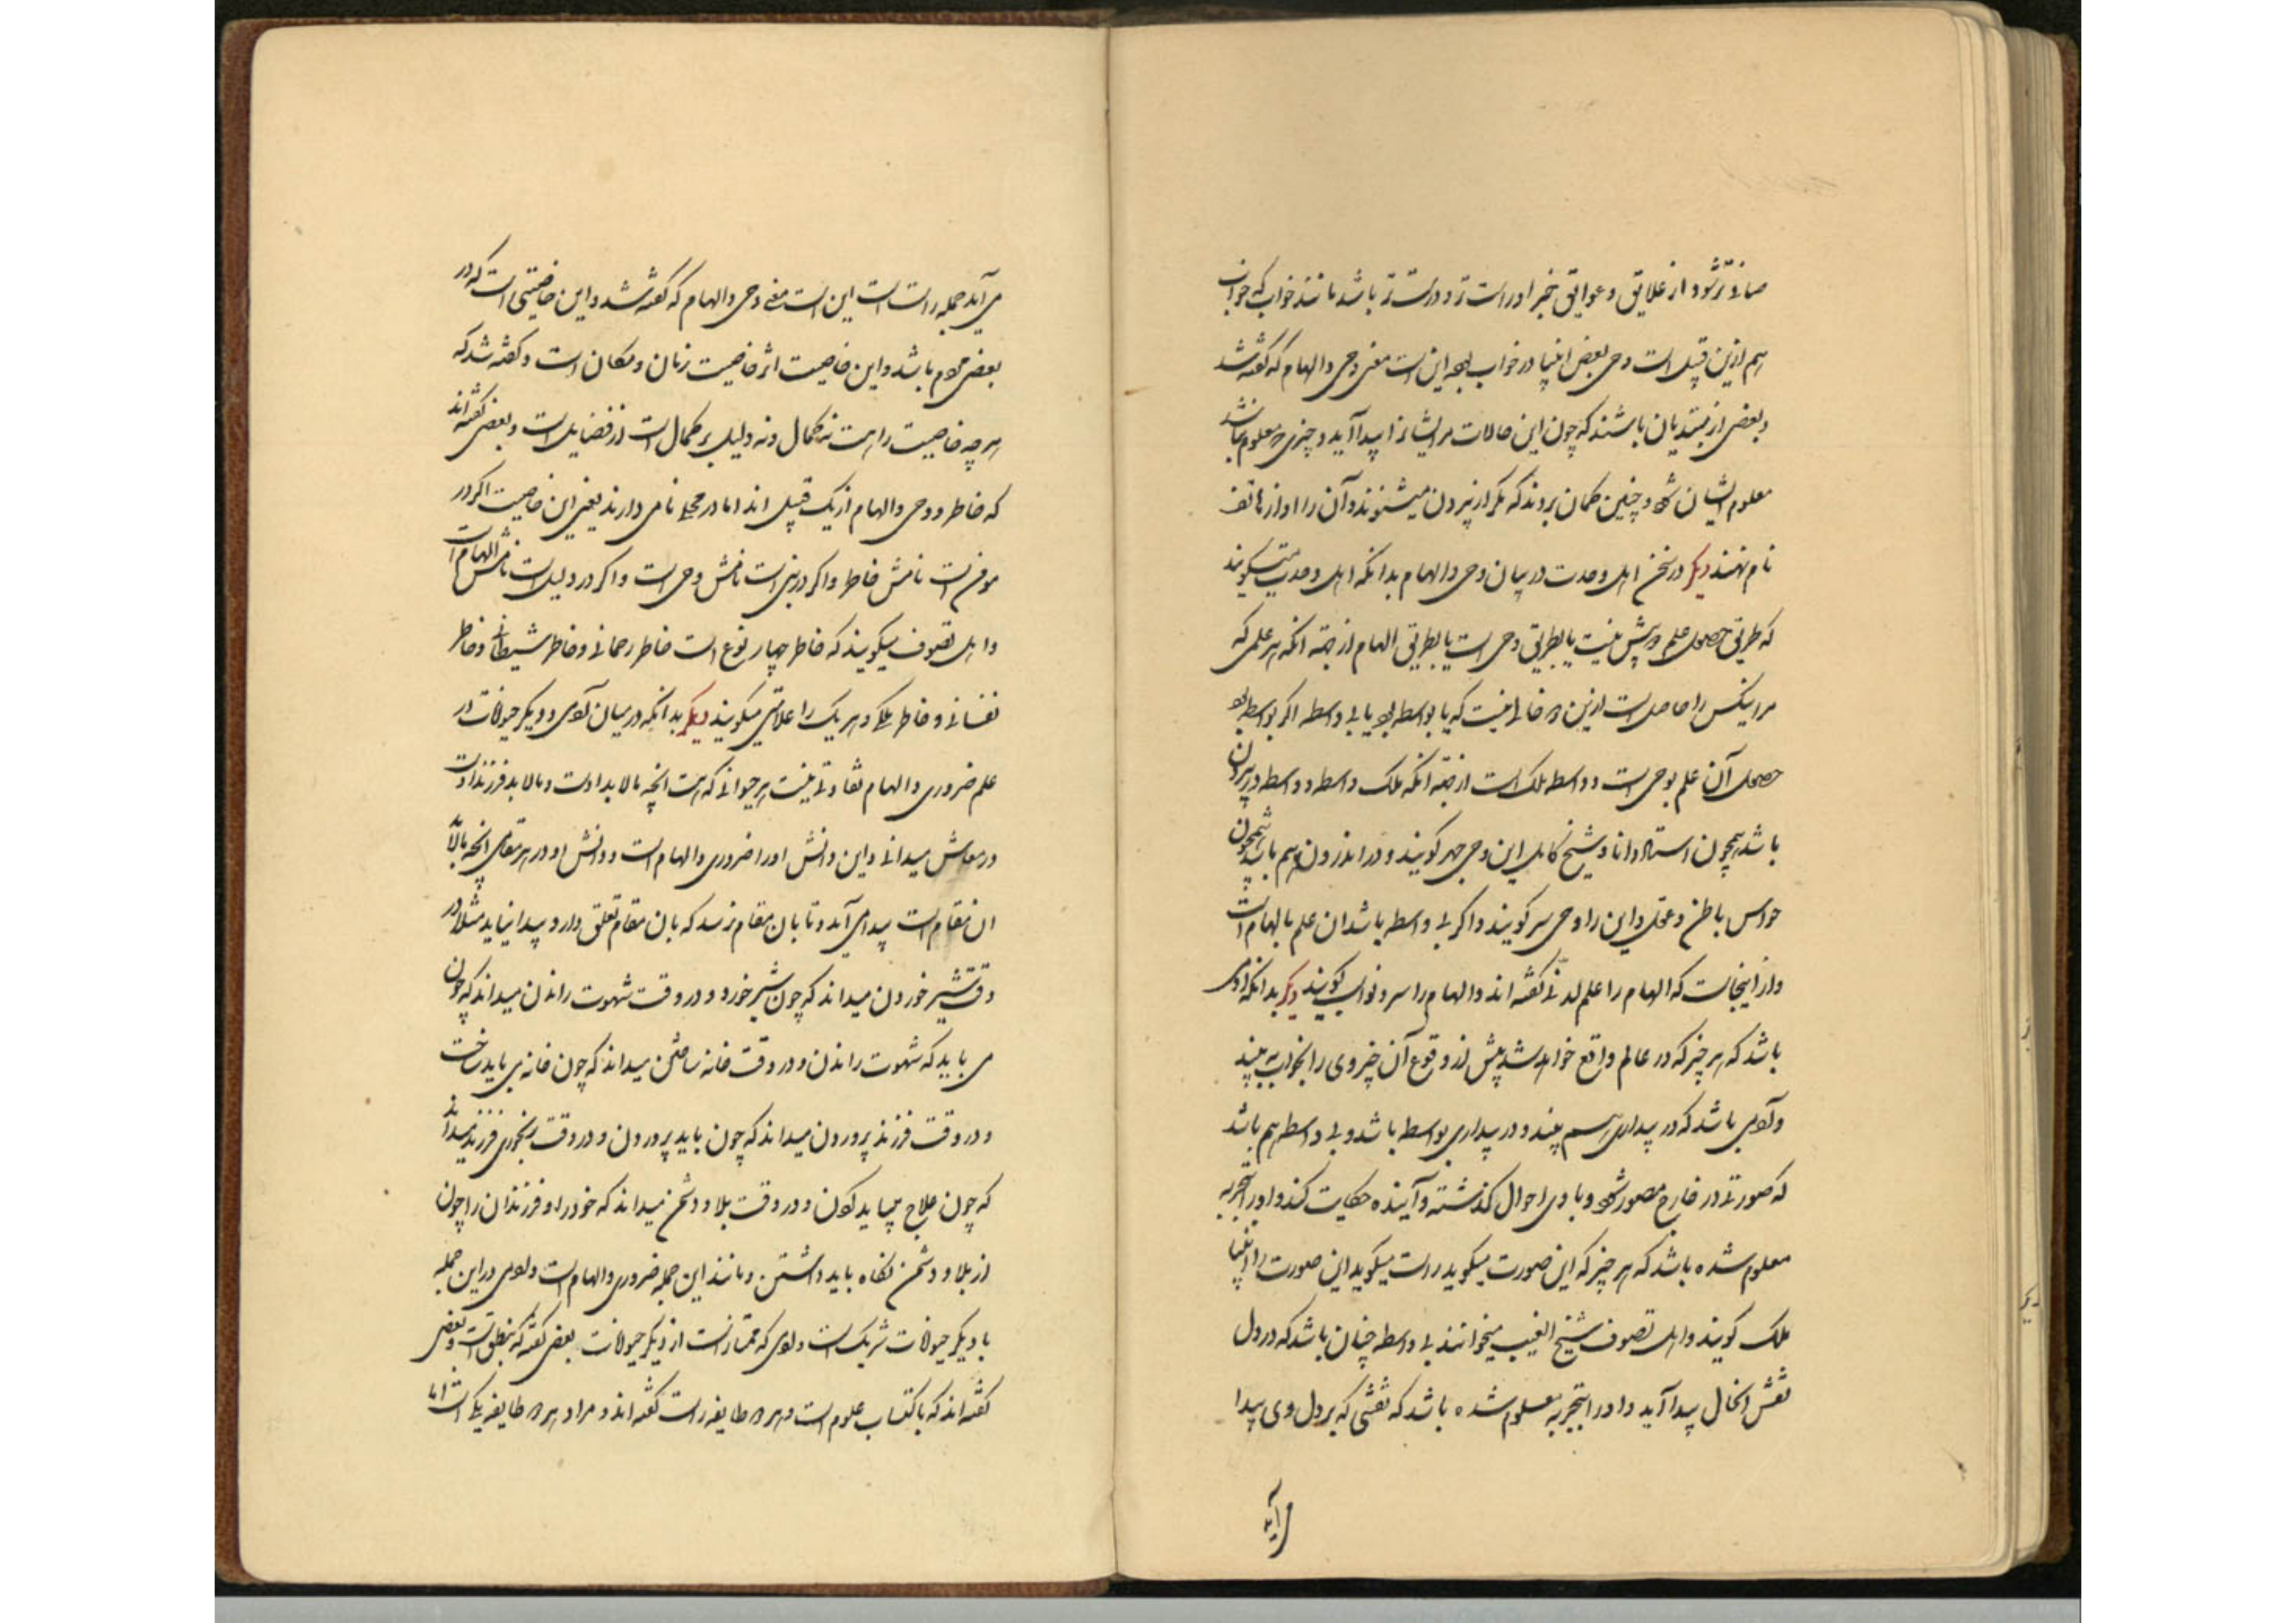 صافی‌تر شود از علایق و عوایق خبر او راست‌تر و درست‌تر باشد مانند خواب که خواب
هم ازین قبیل است وحی بعض انبیا در خواب بوده این است معنی وحی و الهام که گفته شد
و بعضی از مبتدیان باشند که چون این حالات مر ایشانرا پیدا آید و چیزی معلوم باشد
معلوم ایشان شود چنین گمان برند که مگر از بیرون میشنوند و آن را آواز هاتف
نام نهند دیگر در سخن اهل وحدت در بیان وحی و الهام بدانکه اهل وحدت میگویند
که طریق حصول علم دو بیش نیست یا بطریق وحی است یا بطریق الهام از جهة آنکه هر علمی که
مر اینکس را حاصل است ازین دو خالی نیست که یا بواسطه بود یا بی واسطه اگر بواسطه بود
حصول آن علم بوحی است و واسطه ملک است از جهة آنکه ملک واسطه و واسطه در بیرون
باشد همچون استاد دانا و شیخ کامل این وحی جهر گویند و در اندرون هم باشد همچون
حواس باطن و عقل و این را وحی سر گویند و اگر بی واسطه باشد ان علم بالهام است
و از اینجاست که الهام را علم لدنی گفته اند و الهام را سر و نواب گویند دیگر بدانکه آدمی
باشد که هر چیز که در عالم واقع خواهد شد پیش از وقوع آن چیز وی را بخواب به بیند
و آدمی باشد که در بیداری هم بیند و در بیداری بواسطه باشد و بی واسطه هم باشد
که صورتی در خارج مصور شود و با وی احوال گذشته و آینده حکایت کند و او را بتجربه
معلوم شده باشد که هر چیز که این صورت میگوید راست میگوید این صورت را انبیا
ملک گویند و اهل تصوف شیخ الغیب میخوانند بی واسطه چنان باشد که در دل
نقش انحال پیدا آید و او را بتجربه معلوم شده باشد که نقشی که بر دل وی پیدا
می آید
می آید جمله راست است این است معنی وحی و الهام که گفته شد و این خاصیتی است که در
بعضی مردم باشد و این خاصیت اثر خاصیت زمان و مکان است و گفته شد که
هر چه خاصیت راست نه کمال و نه دلیل بر کمال است از فضایل است و بعضی گفته اند
که خاطر و وحی و الهام از یک قبیل اند اما در محلی نامی دارند یعنی این خاصیت اگر در
مومن است نامش خاطر و اگر در نبی است نامش وحی است و اگر در ولی است نامش الهام است
و اهل تصوف میگویند که خاطر چهار نوع است خاطر رحمانی و خاطر شیطانی و خاطر
نفسانی و خاطر ملکی و هر یک را علامتی میگویند دیگر بدانکه در میان آدمی و دیگر حیوانات در
علم ضروری و الهام تفاوتی نیست هر حیوانی که هست آنچه مالابد اوست و مالابد فرزند اوست
در معاش میدانی و این دانش او را ضروری و الهام است و دانش او در هر مقامی آنچه مالابد
ان مقام است پیدا می آید و تا بان مقام نرسد که بان مقام تعلق دارد پیدا نیاید مثلا در
وقت شیر خوردن میداند که چون شیر خورد و در وقت شهوت راندن میداند که چون
می باید که شهوت راندن و در وقت خانه ساختن میداند که چون خانه می باید ساخت
و در وقت فرزند پروردن میداند که چون باید پروردن و در وقت رنجوری فرزند میداند
که چون علاج میباید کردن و در وقت بلا و دشمن میداند که خود را و فرزندان را چون
از بلا و دشمن نگاه باید داشتن و مانند این جمله ضروری و الهام است و آدمی در این جمله
با دیگر حیوانات شریک است و آدمی که ممتاز است از دیگر حیوانات بعضی گفته که بنطق است و بعضی
گفته اند که باکتساب علوم است و هر دو طایفه راست گفته اند و مراد هر دو طایفه یکی است اما